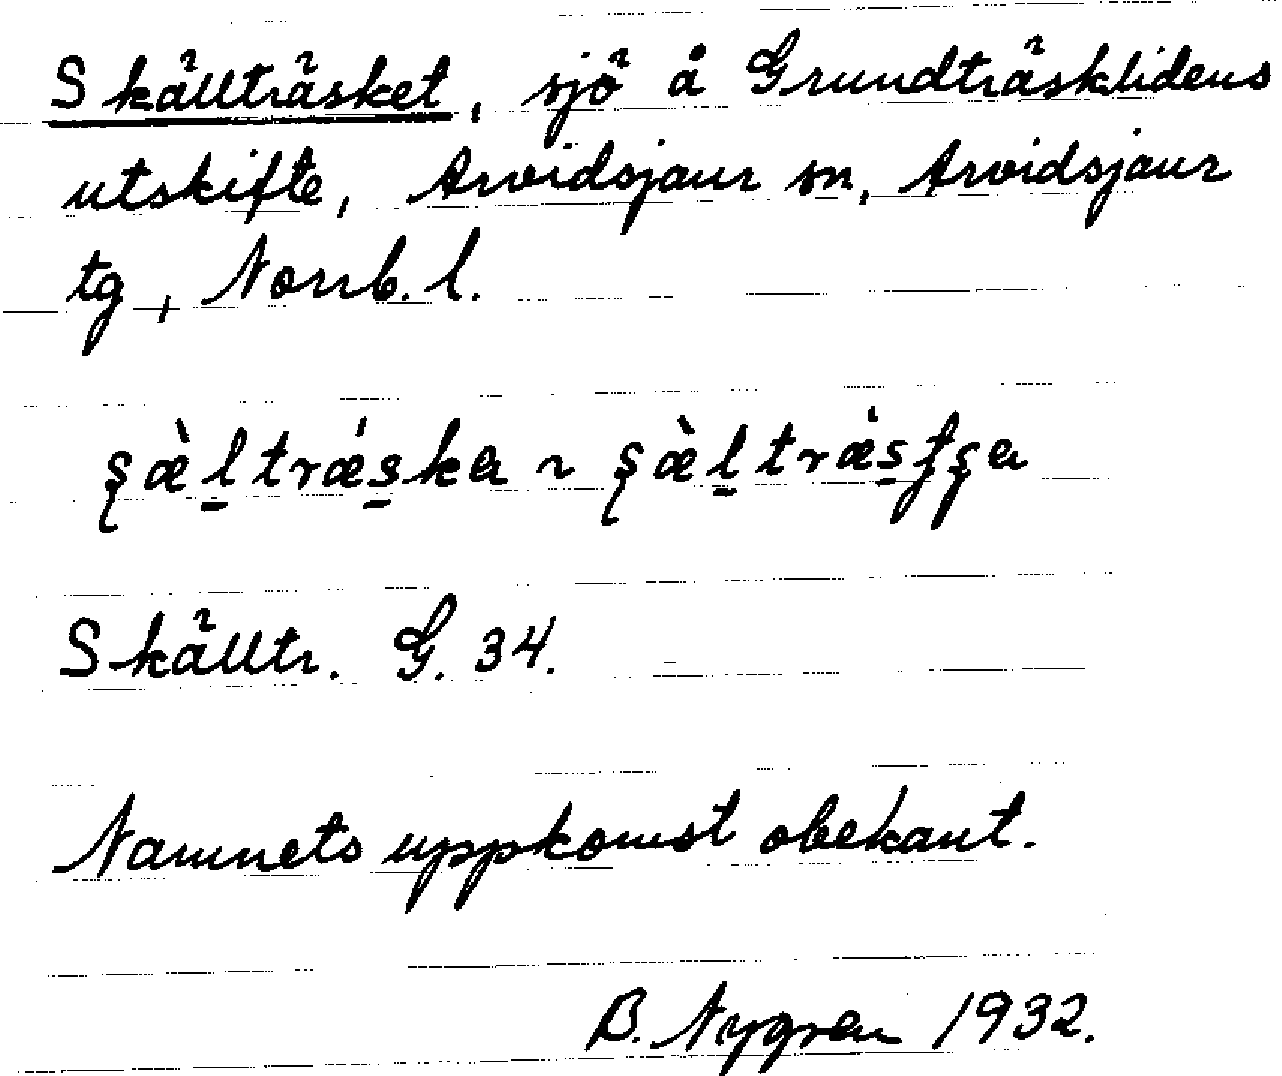 Skällträsket, sjö å Grundträsklidens
utskifte, Arvidsjaur sn, Arvidsjaur
tg, Norrb. l.
Skälltr. G. 34.
Namnets uppkomst obekant.
B. Nygren 1932.